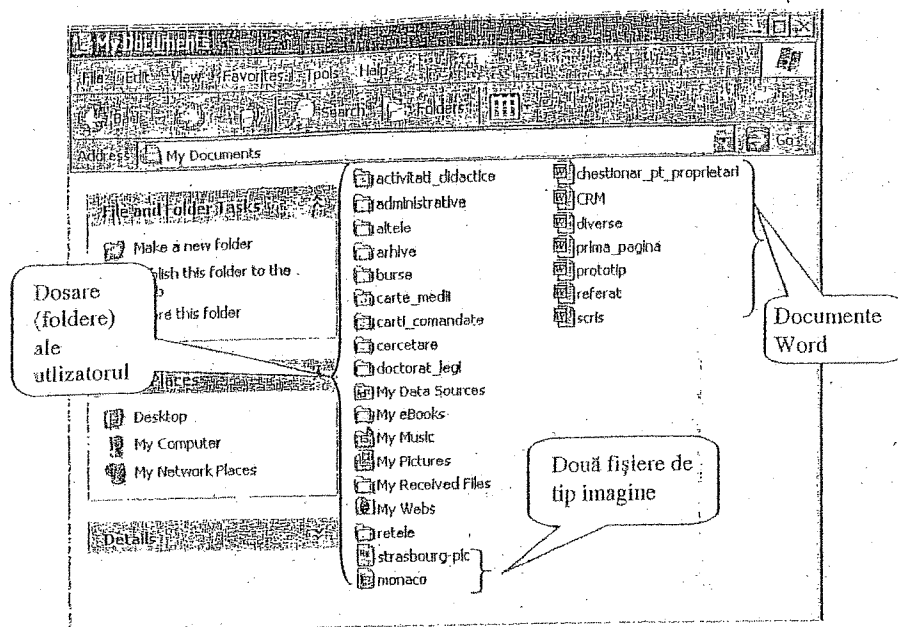 My Documents
File Edit View Favorites Tools Help
Search Folders
Address My Documents Go
File and Folder Tasks
Make a new folder
blish this folder to the
re this folder
Places
Desktop
My Computer
My Network Places
Details
Dosare
(foldere)
ale
utlizatorul
activitati_didactice
administrative
altele
arhive
burse
carte_medii
carti_comandate
cercetare
doctorat_legi
My Data Sources
My eBooks
My Music
My Pictures
My Received Files
My Webs
retele
strasbourg-pic
monaco
chestionar_pt_proprietari
CRM
diverse
prima_pagina
prototip
referat
scris
Documente
Word
Două fişiere de
tip imagine